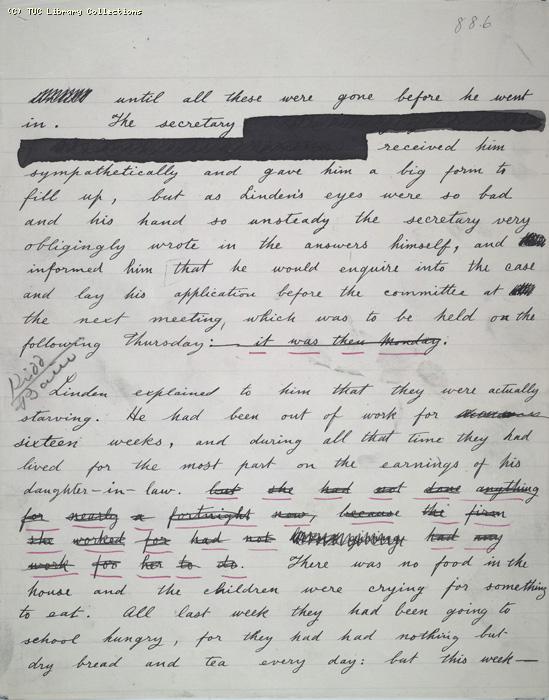 (C) TUC Library Collections
886
until all these were gone before he went
in. The secretary
received him
sympathetically and gave him a big form to
fill up, but as Linden's eyes were so bad
and his hand so unsteady the secretary very
obligingly wrote in the answers himself, and
informed him that he would enquire into the case
and lay his application before the committee at
the next meeting, which was to be held on the
following Thursday: — it was then Monday.
Linden explained to him that they were actually
starving. He had been out of work for
sixteen weeks, and during all that time they had
lived for the most part on the earnings of his
daughter-in-law. but she had not done anything
for nearly a fortnight now, because the firm
she worked for had not had any
work for her to do. There was no food in the
house and the children were crying for something
to eat. All last week they had been going to
school hungry, for they had had nothing but
dry bread and tea every day: but this week—